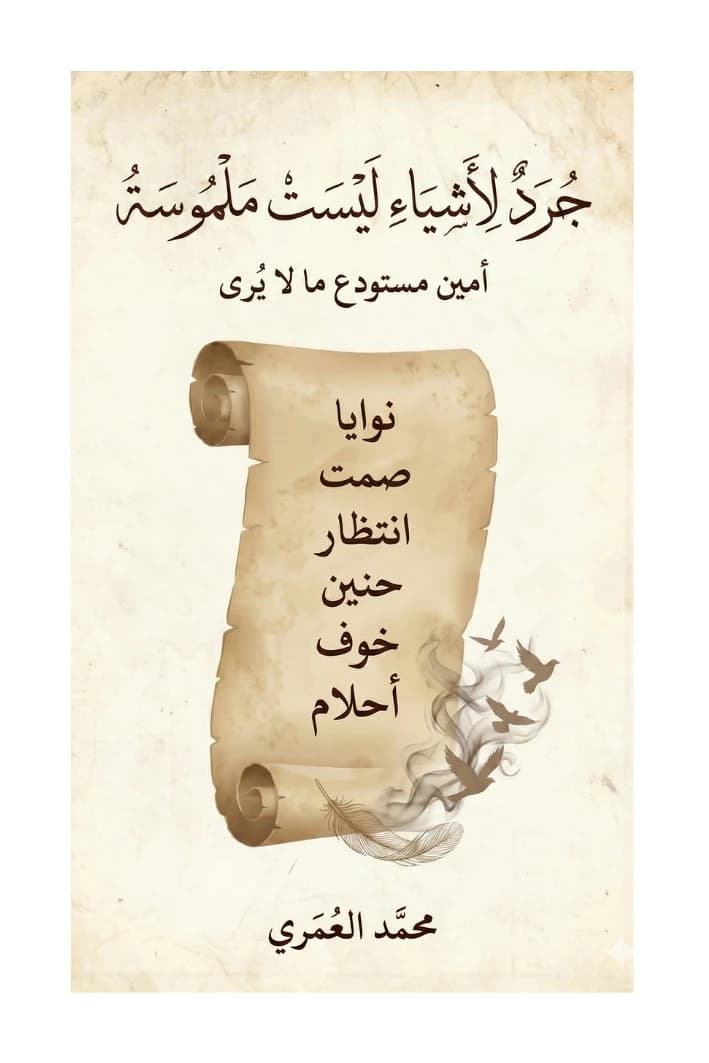 جُرَدٌ لِأَشيَاءِ لَيْسَتْ مَلْمُوسَةُ
أمين مستودع ما لا يُرى
نوايا
صمت
انتظار
حنين
خوف
أحلام
محمَّد العُمَري